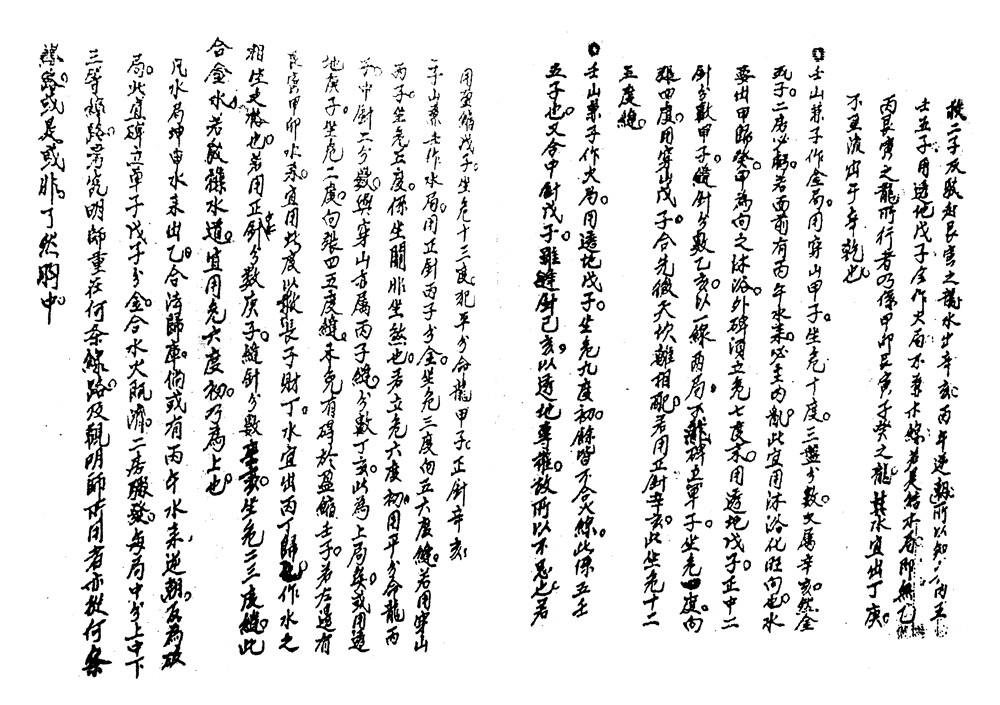 秩二子反數起艮寅之龍水出辛亥丙午逆朝所以知
壬五子用透地戊子全作火局不兼水線若是結水局即無乙
丙艮寅之龍所行者乃係甲卯艮寅子癸之龍其水宜出丁庚
不宜流出于辛乾也
壬山兼子作金局用穿山甲子坐危十度三盤分數又屬辛亥然金
瓦子二房必歸若面前有丙午水來必主內亂此宜用沐浴化旺向也水
要出甲歸癸甲為向之沐浴外碑須立危七度末用透地戊子正中二
針分數甲子縫針分數乙亥以一線兩局不離碑立單子坐危四度向
張四度用穿山戊子合先後天坎離相配若用正針辛亥此坐危十二
五度縫
壬山兼子作火局用透地戊子坐危九度初餘皆不合火線此係五壬
五子也又合中針戊子雖縫針己亥以透地專權故所以不忌也若
用盈縮戊子坐危十三度犯平分合龍甲子正針辛亥
子山兼壬作水局用正針丙子分金坐危三度向五六度縫若用穿山
丙子坐危五度係生關非坐煞也若立危六度初用平分合龍丙
子中針二分數與穿山亦屬丙子縫分數丁亥此為上局矣或用透
地庚子坐危二度向張四五度縫未免有碍於盈縮壬子若左邊有
艮寅甲卯水來宜用此度以發長子財丁水宜出丙丁歸乙作水之
相生吏發也若用正針中分數庚子縫針分數辛亥坐危三三度縫此
合金水若敢操水道宜用危六度初乃為上也
凡水局坤申水來出乙合法歸庫倘或有丙午水來逆朝反為破
局此宜碑立單子戊子分金合水火既濟二房職發每局中分上中下
三等線路高究明師重在何条線路及觀明師所用者亦放何条
線路或是或非了然胸中